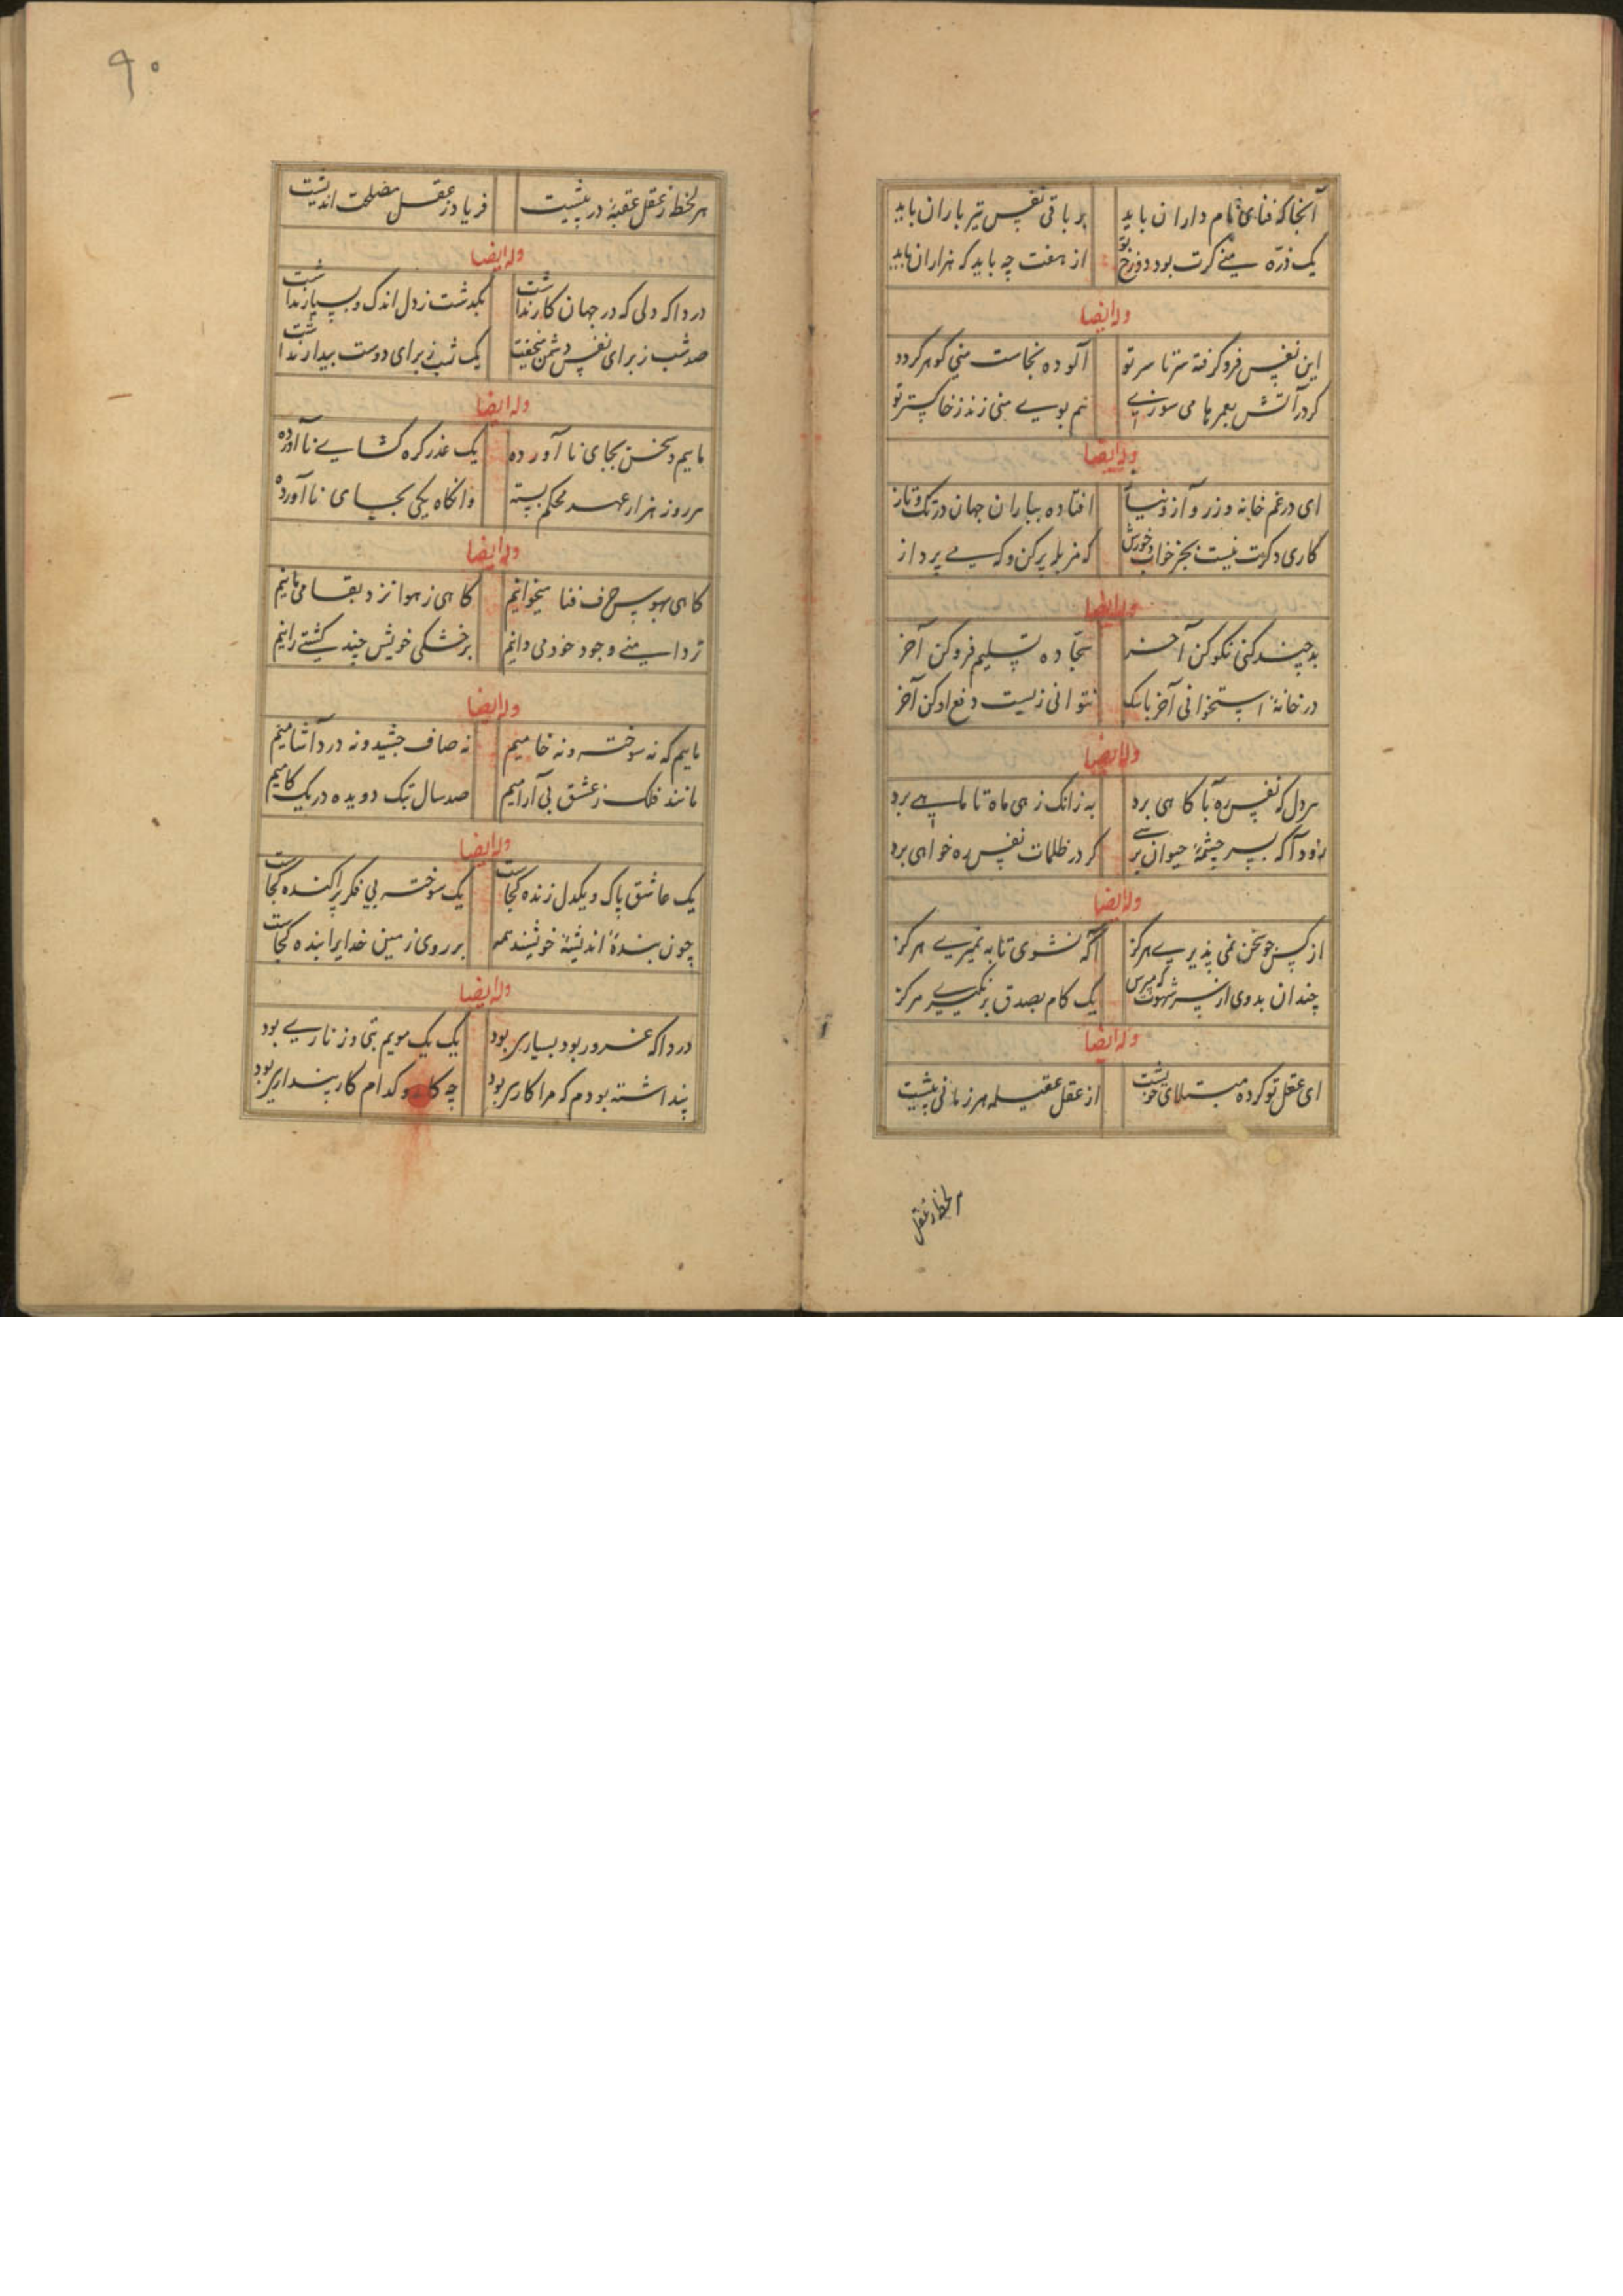 آنجا که فنای نام داران باید بر باقی نفس تیر باران باید
یک ذره منی گرت بود دوزخ تو از هفت چه باید که هزاران باید
وله ایضا
این نفس فرو گرفته سر تا سر تو آلوده نجاست منی گوهر
گر در آتش بعمرها می سوزی هم بوی منی زند ز خاکستر تو
وله ایضا
ای در غم خانه و زر و آز و نیاز افتاده بباران جهان در تک و تاز
کاری دگرت نیست بجز خواب و خورش که مزبله پر کن و گهی پرداز
وله ایضا
بد چند کنی نکو کن آخر سجاده تسلیم فرو کن آخر
در خانه استخوانی آخر با سگ نتوانی زیست دفع او کن آخر
وله ایضا
هر دل که ز نفس ره بآگاهی برد به زانک ز هی ماه تا ماهی برد
زود آ که بسر چشمه حیوان برسی گر در ظلمات نفس ره خواهی برد
وله ایضا
از کس چو سخن نمی پذیری هرگز آگه نشوی تا به نمیری هرگز
چندان بدوی از پس شهوت که مپرس یک کام بصدق برنگیری هرگز
وله ایضا
ای عقل تو کرده مبتلای خویشت از عقل عقیله هر زمانی پیشت
هر لحظه ز عقل
۹۰
هر لحظه ز عقل عقبه در پیشت فریاد ز عقل مصلحت اندیشت
وله ایضا
دردا که دلی که در جهان کار نداشت بگذشت ز دل اندک و بسیار نداشت
صد شب ز برای نفس دشمن بنخفت یک شب ز برای دوست بیدار نداشت
وله ایضا
ماییم و سخن بجای نا آورده یک عذر گره گشای نا آورده
هر روز هزار عهد محکم بسته وانگاه یکی بجای نا آورده
وله ایضا
گاهی بهوس حرف فنا میخوانیم گاهی ز هوا نزد بقا می مانیم
تر دامنی وجود خود می دانیم بر خشکی خویش چند کشتی رانیم
وله ایضا
ماییم که نه سوخته و نه خامیم نه صاف چشیده و نه درد آشامیم
مانند فلک ز عشق بی آرامیم صد سال بتک دویده در یک گامیم
وله ایضا
یک عاشق پاک و یکدل زنده کجاست یک سوخته بی فکر پراکنده کجاست
چون بنده اندیشه خویشند همه بر روی زمین خدایرا بنده کجاست
وله ایضا
دردا که غرور بود بسیاری بود یک یک مویم بتی و زناری بود
پنداشته بودم که مرا کاری بود چه کار و کدام کار پنداری بود